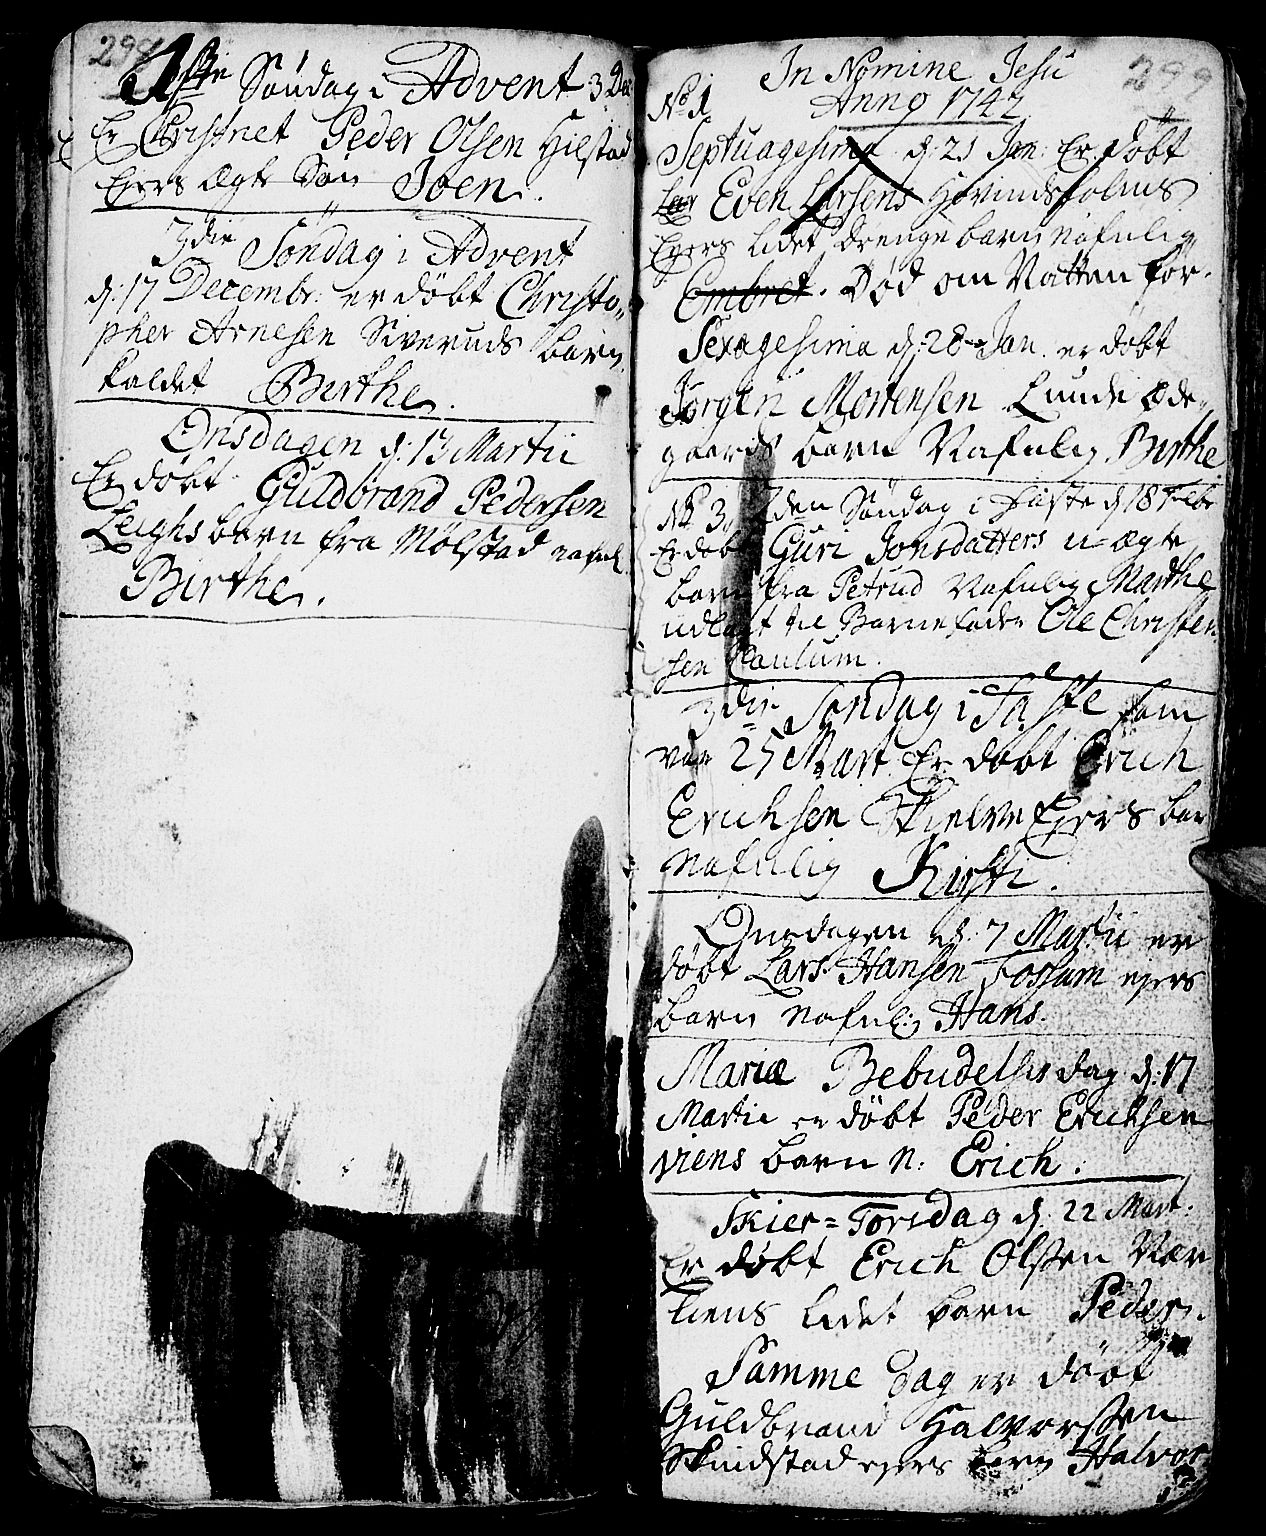 298
1ste Søndag i Advent 3 Dec
Er Christnet Peder Olsen Hilstad
Ejers Ægte Søn Joen.
3die Søndag i Advent
d: 17 Decembr: er døbt Christo„
pher Arnesen Siveruds barn
kaldet Birthe.
Onsdagen d: 13 Martii
Er døbt Guldbrand Pedersen
Leighs barn fra Mølstad nafnl.
Birthe.
299
In Nomine Jesu
No 1. Anno 1742
Septuagesima d: 21 Jan: Er døbt
Even Larsens Hovindsholms
Ejers lidet drenge barn nafnlig
Embret. Død om Natten før.
Sexagesima d: 28 Jan. er døbt
Jørgen Mortensen Lunde Øde„
gaards barn Nafnlig Birthe
No 3. 2den Søndag i Faste d 18 Febr
Er døbt Guri Jonsdatters u-ægte
barn fra Petrud Nafnlig Marthe
udlagt til Barnefader Ole Christen
sen Paulum.
3die Søndag i Faste som
var 25 Mart. Er døbt Erich
Erichsen Skielve Ejers bar
Nafnlig Kirsti.
Onsdagen d: 7 Martii er
døbt Lars Hansen Fossum ejers
barn nafnl: Hans.
Mariæ Bebudelses dag d: 17
Martii er døbt Peder Erichsen
Viens barn n: Erich.
Skier=Torsdag d: 22 Mart.
Er døbt Erich Olsen Nær
liens lidet barn Peder.
Samme Dag er døbt
Guldbrand Halvorsen
Skindstad ejers barn Halvor